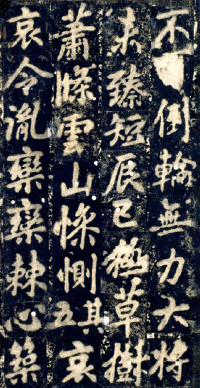 不倒輪無力大将
未臻短辰已極草樹
蕭條雲山慘惻其五哀
哀令胤欒欒棘心築